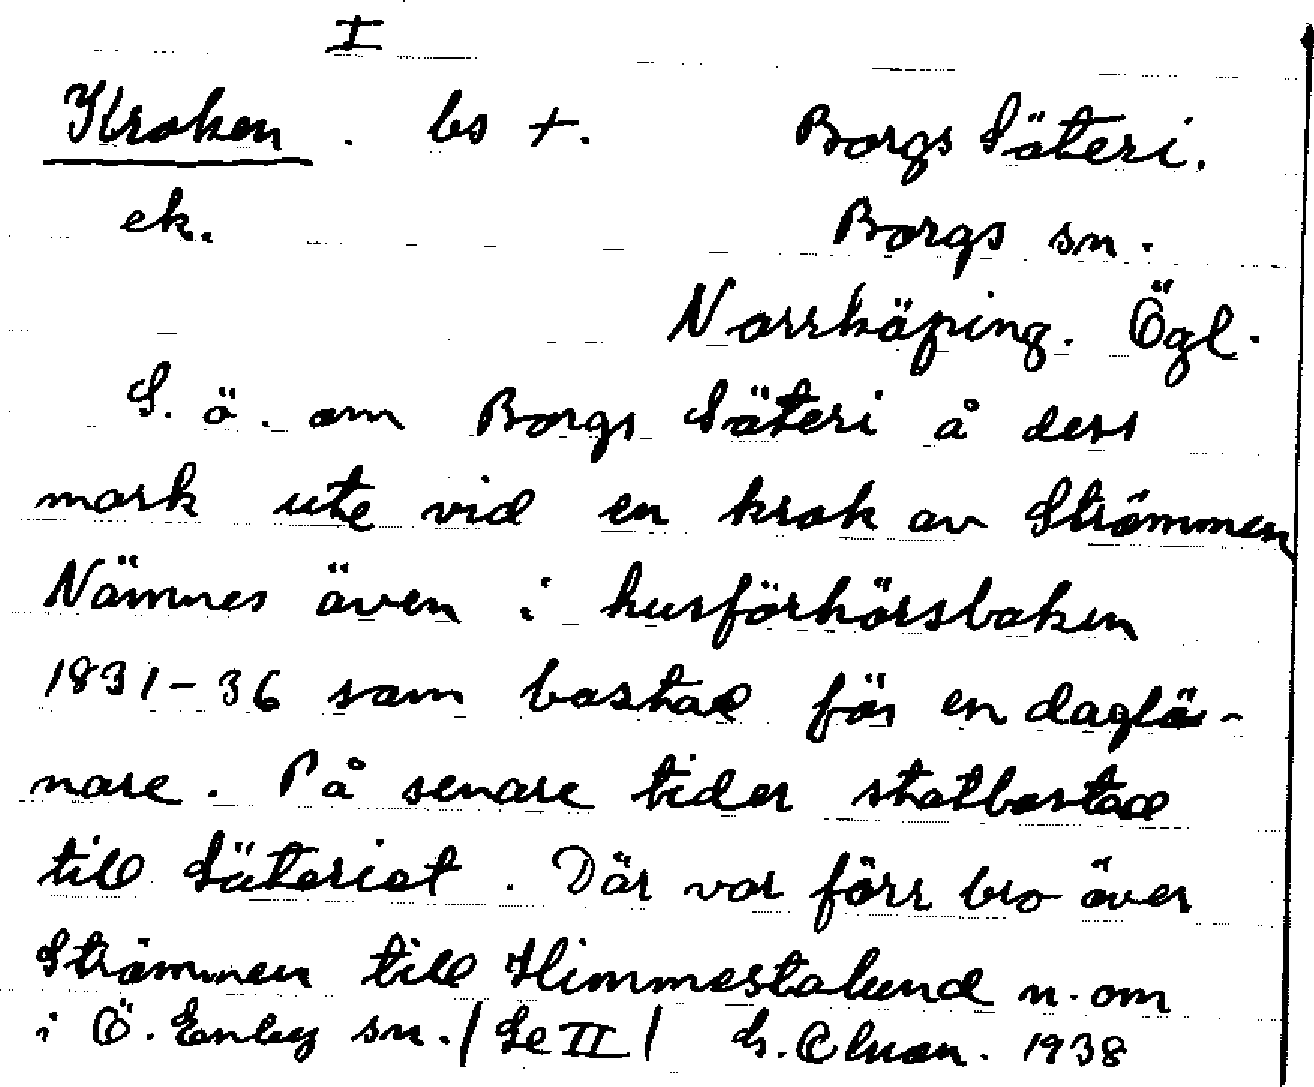 I
Kroken. bs +. Borgs Säteri.
ek. Borgs sn.
Norrköping. Ögl.
S. ö. om Borgs Säteri å dess
mark ute vid en krok av Strömmen
Nämnes även i husförhörsboken
1831-36 som bostad för en daglö-
nare. På senare tider statbostad
till Säteriet. Där var förr bro över
Strömmen till Himmestalund n. om
i Ö. Eneby sn. / Se II / 1938